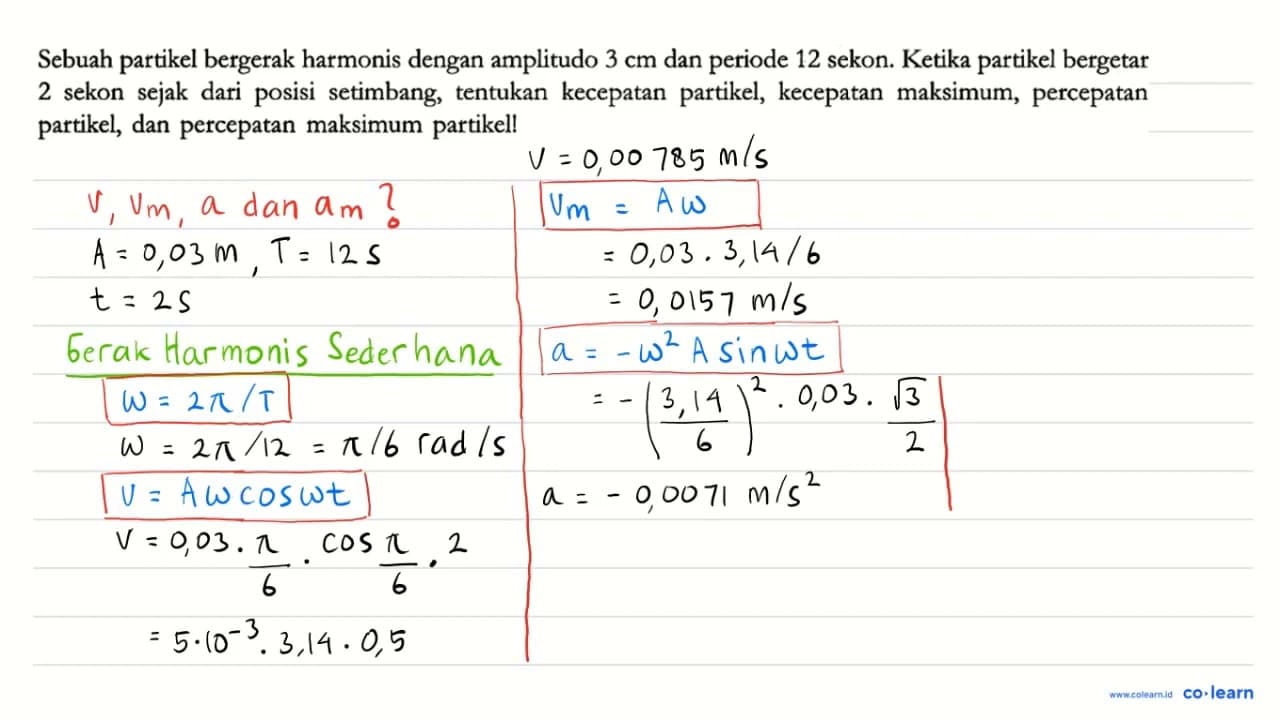 Sebuah partikel bergerak harmonis dengan amplitudo 3 cm dan periode 12 sekon. Ketika partikel bergetar
2 sekon sejak dari posisi setimbang, tentukan kecepatan partikel, kecepatan maksimum, percepatan
partikel, dan percepatan maksimum partikel!
v, vm, a dan am?
A = 0,03 m, T = 12 s
t = 2 s
Gerak Harmonis Sederhana
ω = 2π/T
ω = 2π/12 = π/6 rad/s
v = Aω cos ωt
v = 0,03 . π/6 . cos π/6 . 2
= 5·10⁻³ . 3,14 . 0,5
v = 0,00785 m/s
vm = Aω
= 0,03 . 3,14/6
= 0,0157 m/s
a = -ω² A sin ωt
= -(3,14/6)² . 0,03 . √3/2
a = -0,0071 m/s²
www.colearn.id co·learn